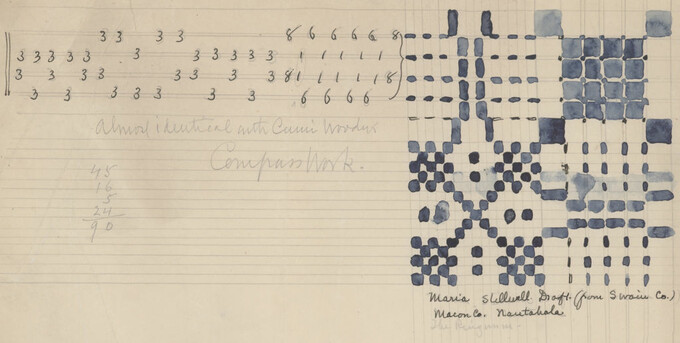 3 3 3 3 8 6 6 6 6 8
3 3 3 3 3 3 3 3 3 3 3 1 1 1 1 1
3 3 3 3 3 3 3 3 8 1 1 1 1 1 8
3 3 3 3 3 3 3 6 6 6 6
Almost identical with Cumi Woodys
Compass Work.
45
16
5
24
90
Maria Stillwell Draft. (from Swain Co.)
Macon Co. Nantahala